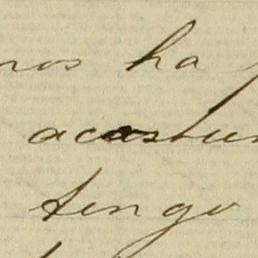 nos ha
acostum
tengo